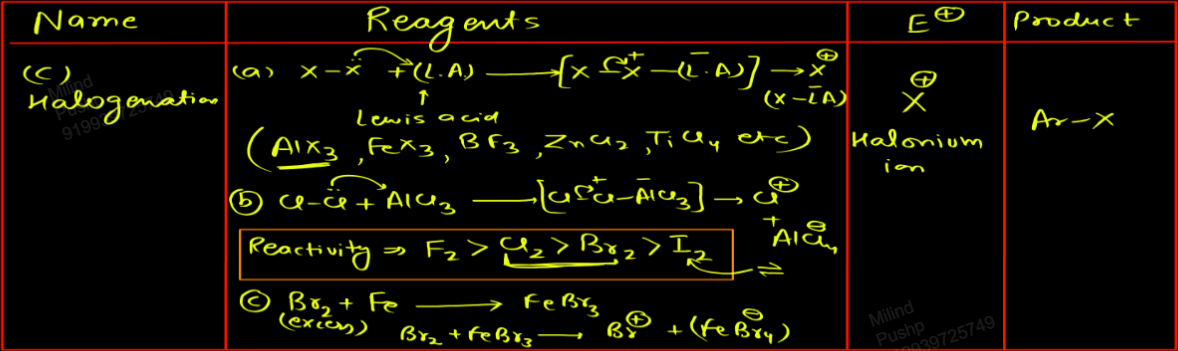 Name
Reagents
E⊕
Product
(C)
Halogenation
(a) X–Ẍ + (L.A) ⟶ [X–X⁺–(L̄.A)] → X⊕
(X–L̄A)
↑
Lewis acid
(AlX3, FeX3, BF3, ZnCl2, TiCl4 etc)
ⓑ Cl–C̈l + AlCl3 ⟶ [Cl–Cl⁺–ĀlCl3] → Cl⊕
+ AlCl4⊖
Reactivity ⇒ F2 > Cl2 > Br2 > I2
⇌
ⓒ Br2 + Fe ⟶ FeBr3
(excess)
Br2 + FeBr3 ⟶ Br⊕ + (FeBr4)⊖
X⊕
Halonium
ion
Ar–X
Milind
Pushp
Milind
Pushp
9939725749